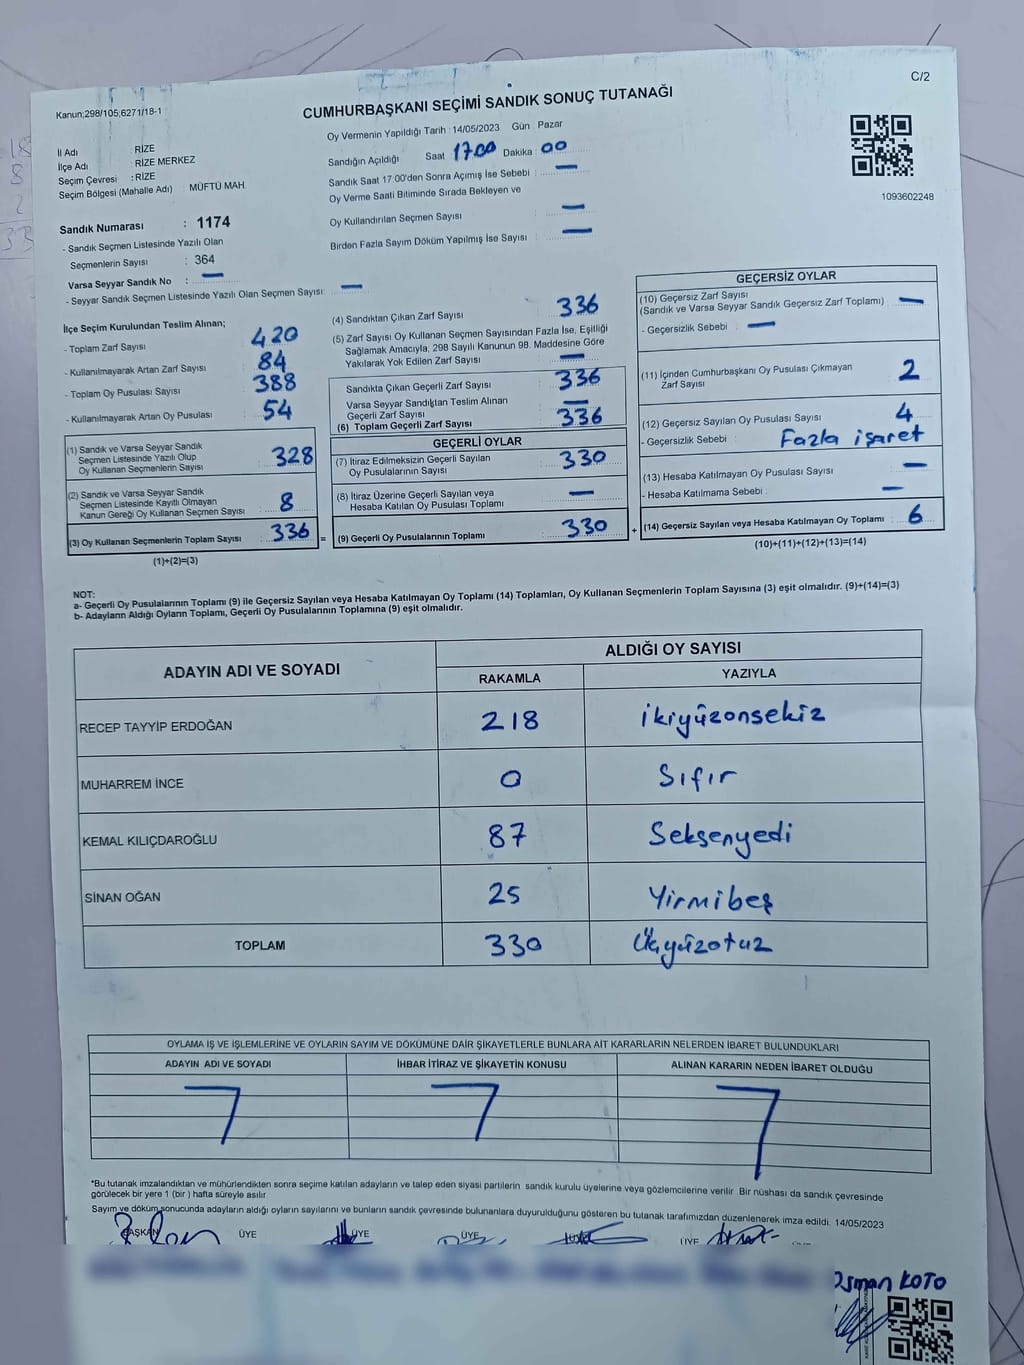 C/2
Kanun;298/105;6271/18-1
CUMHURBAŞKANI SEÇİMİ SANDIK SONUÇ TUTANAĞI
İl Adı : RİZE
İlçe Adı : RİZE MERKEZ
Seçim Çevresi : RİZE
Seçim Bölgesi (Mahalle Adı) : MÜFTÜ MAH.
Sandık Numarası : 1174
- Sandık Seçmen Listesinde Yazılı Olan
Seçmenlerin Sayısı : 364
Varsa Seyyar Sandık No : —
- Seyyar Sandık Seçmen Listesinde Yazılı Olan Seçmen Sayısı: —
Oy Vermenin Yapıldığı Tarih : 14/05/2023 Gün : Pazar
Sandığın Açıldığı Saat 17.00 Dakika 00
Sandık Saat 17.00'den Sonra Açımış İse Sebebi : —
Oy Verme Saati Bitiminde Sırada Bekleyen ve
Oy Kullandırılan Seçmen Sayısı : —
Birden Fazla Sayım Döküm Yapılmış İse Sayısı : —
1093602248
İlçe Seçim Kurulundan Teslim Alınan;
- Toplam Zarf Sayısı : 420
- Kullanılmayarak Artan Zarf Sayısı : 84
- Toplam Oy Pusulası Sayısı : 388
- Kullanılmayarak Artan Oy Pusulası : 54
(1) Sandık ve Varsa Seyyar Sandık
Seçmen Listesinde Yazılı Olup
Oy Kullanan Seçmenlerin Sayısı : 328
(2) Sandık ve Varsa Seyyar Sandık
Seçmen Listesinde Kayıtlı Olmayan
Kanun Gereği Oy Kullanan Seçmen Sayısı : 8
(3) Oy Kullanan Seçmenlerin Toplam Sayısı : 336
(1)+(2)=(3)
=
(4) Sandıktan Çıkan Zarf Sayısı : 336
(5) Zarf Sayısı Oy Kullanan Seçmen Sayısından Fazla İse, Eşitliği
Sağlamak Amacıyla, 298 Sayılı Kanunun 98. Maddesine Göre
Yakılarak Yok Edilen Zarf Sayısı : —
Sandıkta Çıkan Geçerli Zarf Sayısı : 336
Varsa Seyyar Sandıktan Teslim Alınan
Geçerli Zarf Sayısı : —
(6) Toplam Geçerli Zarf Sayısı : 336
GEÇERLİ OYLAR
(7) İtiraz Edilmeksizin Geçerli Sayılan
Oy Pusulalarının Sayısı : 330
(8) İtiraz Üzerine Geçerli Sayılan veya
Hesaba Katılan Oy Pusulası Toplamı : —
(9) Geçerli Oy Pusulalarının Toplamı : 330
+
GEÇERSİZ OYLAR
(10) Geçersiz Zarf Sayısı
(Sandık ve Varsa Seyyar Sandık Geçersiz Zarf Toplamı) : —
- Geçersizlik Sebebi : —
(11) İçinden Cumhurbaşkanı Oy Pusulası Çıkmayan
Zarf Sayısı : 2
(12) Geçersiz Sayılan Oy Pusulası Sayısı : 4
- Geçersizlik Sebebi : Fazla işaret
(13) Hesaba Katılmayan Oy Pusulası Sayısı : —
- Hesaba Katılmama Sebebi : —
(14) Geçersiz Sayılan veya Hesaba Katılmayan Oy Toplamı : 6
(10)+(11)+(12)+(13)=(14)
NOT:
a- Geçerli Oy Pusulalarının Toplamı (9) ile Geçersiz Sayılan veya Hesaba Katılmayan Oy Toplamı (14) Toplamları, Oy Kullanan Seçmenlerin Toplam Sayısına (3) eşit olmalıdır. (9)+(14)=(3)
b- Adayların Aldığı Oyların Toplamı, Geçerli Oy Pusulalarının Toplamına (9) eşit olmalıdır.
ADAYIN ADI VE SOYADI ALDIĞI OY SAYISI
RAKAMLA YAZIYLA
RECEP TAYYİP ERDOĞAN 218 ikiyüzonsekiz
MUHARREM İNCE 0 Sıfır
KEMAL KILIÇDAROĞLU 87 Seksenyedi
SİNAN OĞAN 25 Yirmibeş
TOPLAM 330 Üçyüzotuz
OYLAMA İŞ VE İŞLEMLERİNE VE OYLARIN SAYIM VE DÖKÜMÜNE DAİR ŞİKAYETLERLE BUNLARA AİT KARARLARIN NELERDEN İBARET BULUNDUKLARI
ADAYIN ADI VE SOYADI İHBAR İTİRAZ VE ŞİKAYETİN KONUSU ALINAN KARARIN NEDEN İBARET OLDUĞU
*Bu tutanak imzalandıktan ve mühürlendikten sonra seçime katılan adayların ve talep eden siyasi partilerin sandık kurulu üyelerine veya gözlemcilerine verilir. Bir nüshası da sandık çevresinde
görülecek bir yere 1 (bir) hafta süreyle asılır.
Sayım ve döküm sonucunda adayların aldığı oyların sayılarını ve bunların sandık çevresinde bulunanlara duyurulduğunu gösteren bu tutanak tarafımızdan düzenlenerek imza edildi. 14/05/2023
BAŞKAN ÜYE ÜYE ÜYE ÜYE ÜYE
Osman KOTO